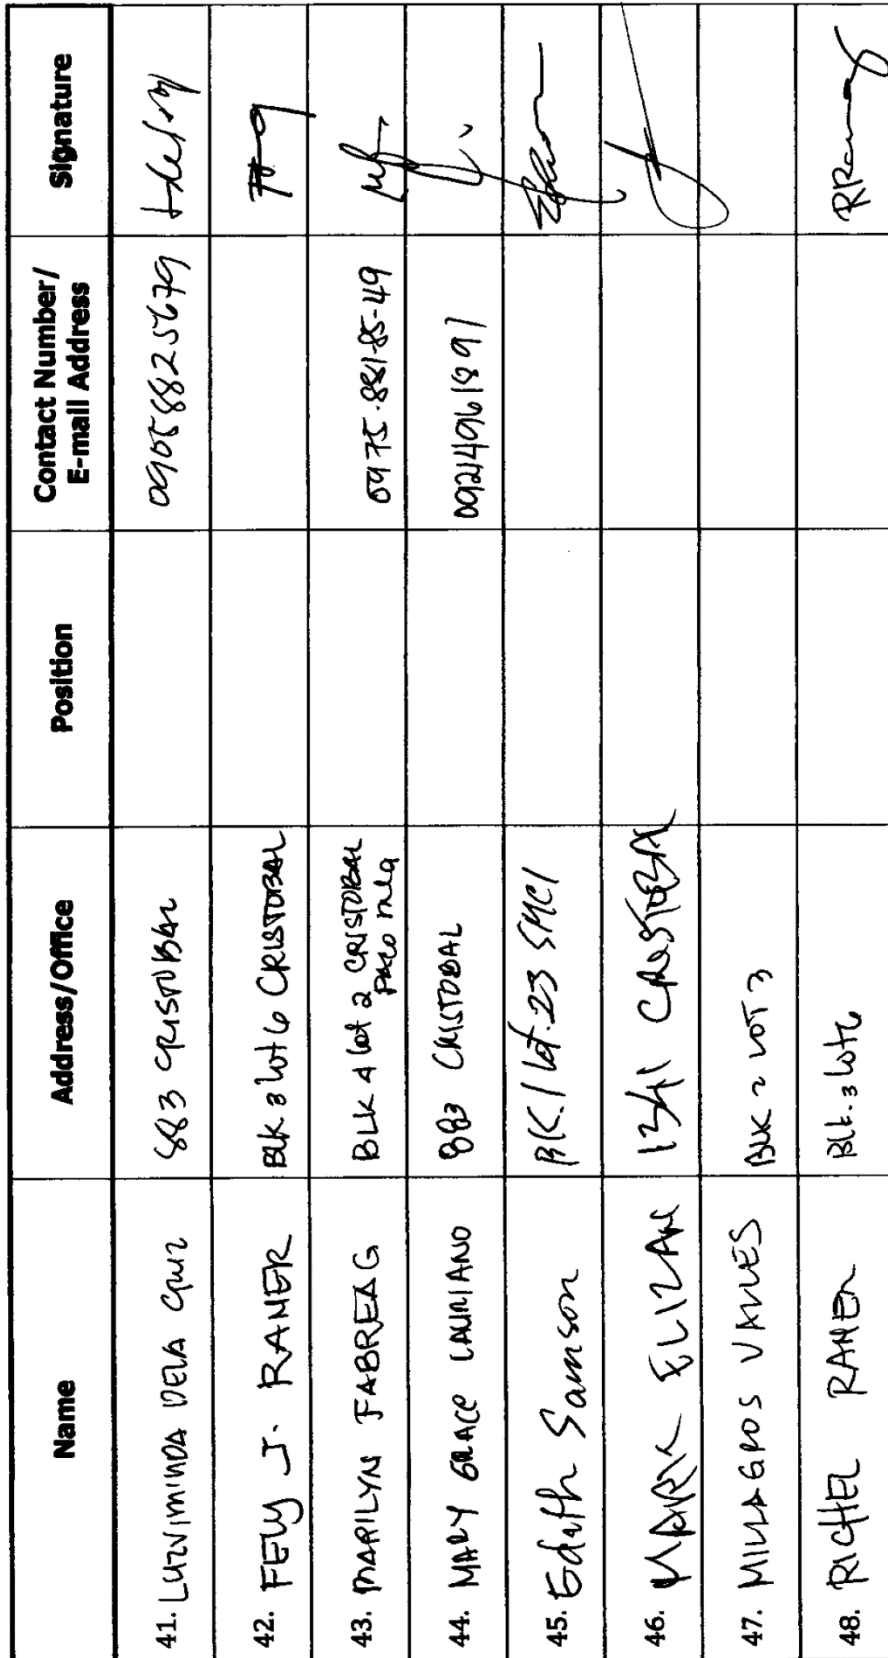 Name Address/Office Position Contact Number/ E-mail Address Signature
41. LUZVIMINDA DELA CRUZ 883 CRISTOBAL 09058825679
42. FELY J. RAMER BLK 3 lot 6 CRISTOBAL
43. MARILYN FABREAG BLK 4 lot 2 CRISTOBAL 0975-881-85-49
PACO mla
44. MARY GRACE LAURIANO 883 CRISTOBAL 09214961891
45. Edith Samson BK.1 lot.23 SMC1
46. MARK ELIZAN 1341 CRISTOBAL
47. MILLAGROS VALLES BLK 2 LOT 3
48. RICHEL RAMER Blk.3 lot 6